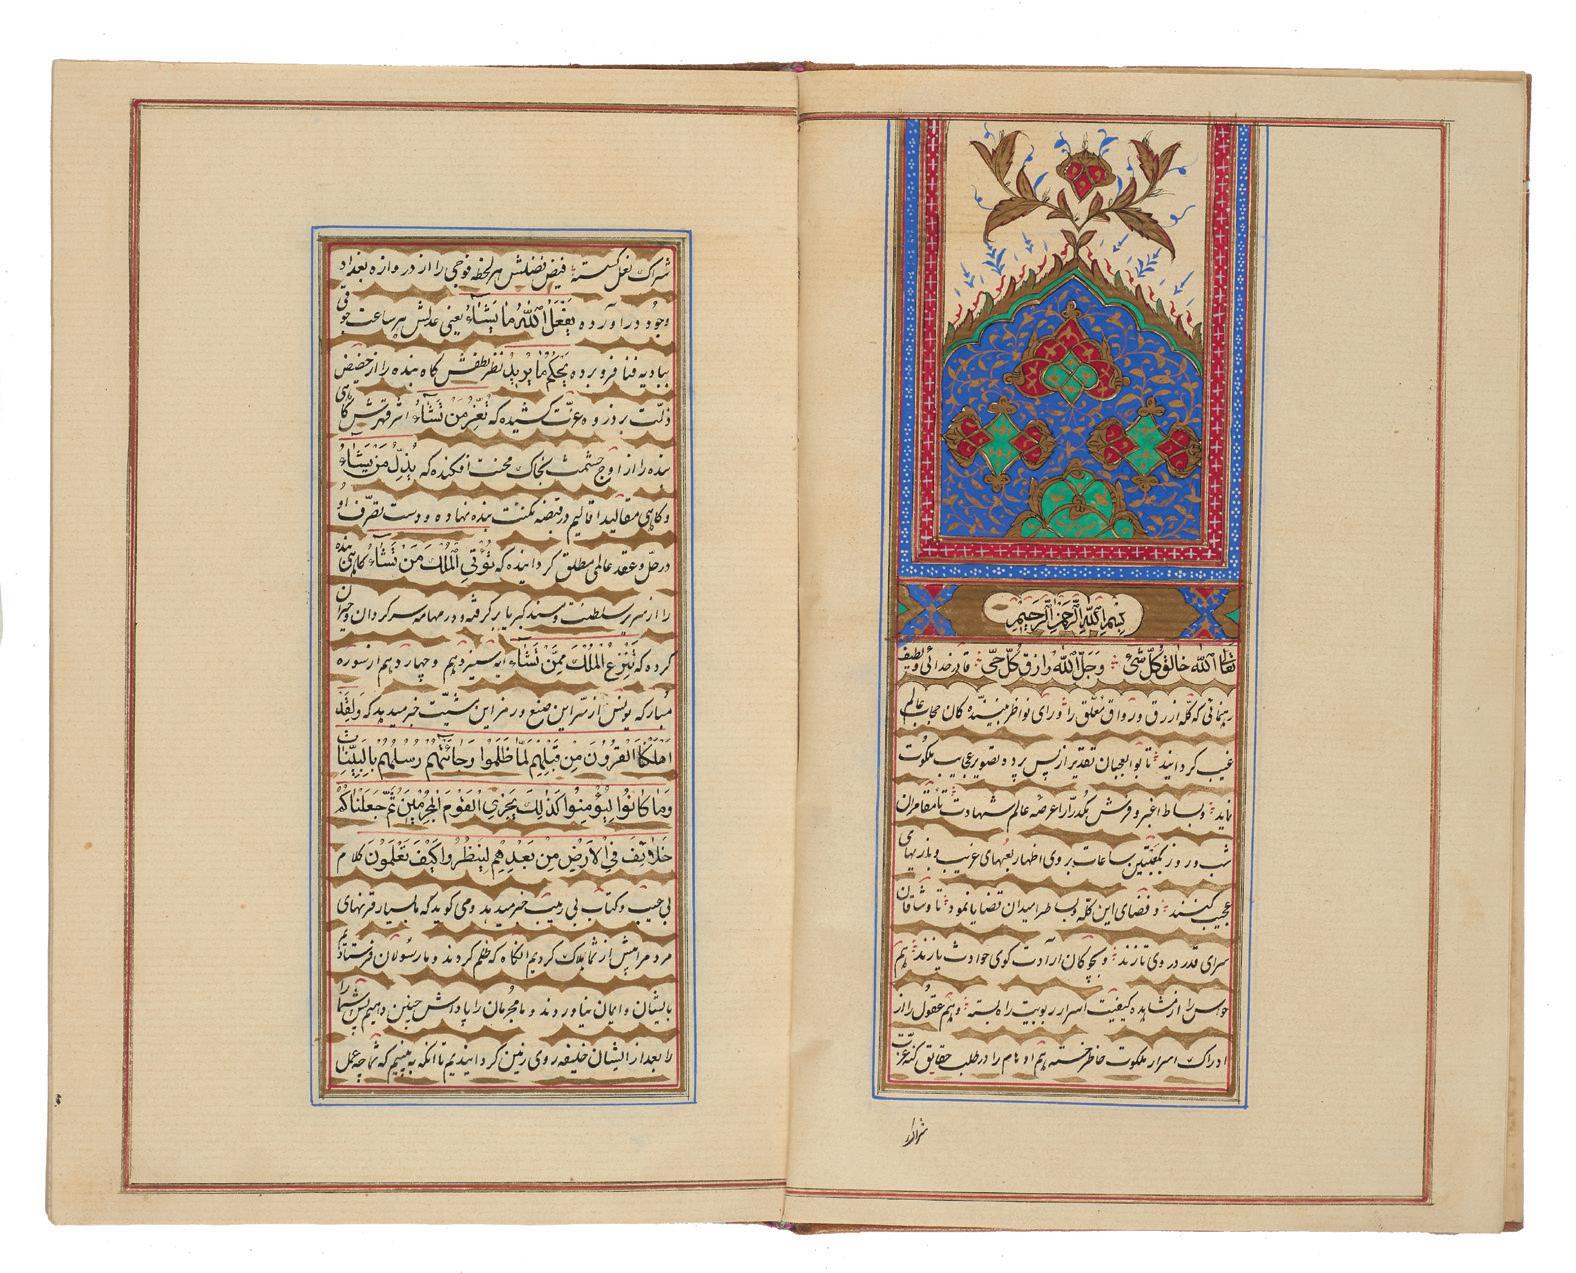 بسم الله الرحمن الرحيم
تعالى الله خالق كل شئ وجل الله رازق كل حى قادر خدائى و لطيف
رهنمائى كه كله ازرق و رواق معلق را وراى نواظر بيننده كان حجاب عالم
غيب كردانيد تا بو العجبان تقدير از پس پرده تصوير عجايب ملكوت
نمايد و بساط اغبر و فرش مكدر را عرصه عالم شهادت تا مقامران
شب و روز بكعبتين ساعات بر وى اظهار لعبهاى غريب و بازيهاى
عجيب كنند و فضاى اين كله و بساط را ميدان قضايا نمود تا وشاقان
سراى قدر در وى تازند و بچوكان ارادت كوى حوادث بازند هم
حواس را از مشاهده كيفيت اسرار ربوبيت راه بسته و هم عقول را از
ادراك اسرار ملكوت خاطر خسته هم اوهام را در طلب حقايق كنه عزت
شراك
شراك نعل كسسته فيض فضلش هر لحظه فوجى را از دروازه بغداد
وجود در آورده يفعل الله ما يشاء يعنى عدلش هر ساعت جوقى
بباديه فنا فرو برده يحكم ما يريد نظر لطفش كاه بنده را از حضيض
ذلت بر ذروه عزت كشيده كه تعز من تشاء اثر قهرش كاهى
بنده را از اوج حشمت بخاك محنت افكنده كه يذل من يشاء
و كاهى مقاليد اقاليم در قبضه مكنت بنده نهاده و دست تصرف او
در حل و عقد عالمى مطلق كردانيده كه تؤتى الملك من تشاء كاهى بنده
را از سرير سلطنت و مسند كبريا بر كرفته و در مهامه سركردان و حيران
كرده كه تنزع الملك ممن تشاء آيه سيزدهم و چهاردهم از سوره
مباركه يونس از سر اين صنع و رمز اين مشيت خبر ميدهد كه ولقد
اهلكنا القرون من قبلكم لما ظلموا وجاءتهم رسلهم بالبينات
وما كانوا ليؤمنوا كذلك يجزى القوم المجرمين ثم جعلناكم
خلائف فى الارض من بعدهم لينظروا كيف تعملون كلام
بى عيب و كتاب بى ريب خبر ميدهد و مى كويد كه ما بسيار قرنهاى
مردم را پيش از شما هلاك كرديم انكاه كه ظلم كردند و ما رسولان فرستاديم
بايشان و ايمان نياوردند و ما مجرمان را پاداش چنين دهيم پس شما را
را بعد از ايشان خليفه روى زمين كردانيديم تا انكه به بينيم كه شما چه عمل